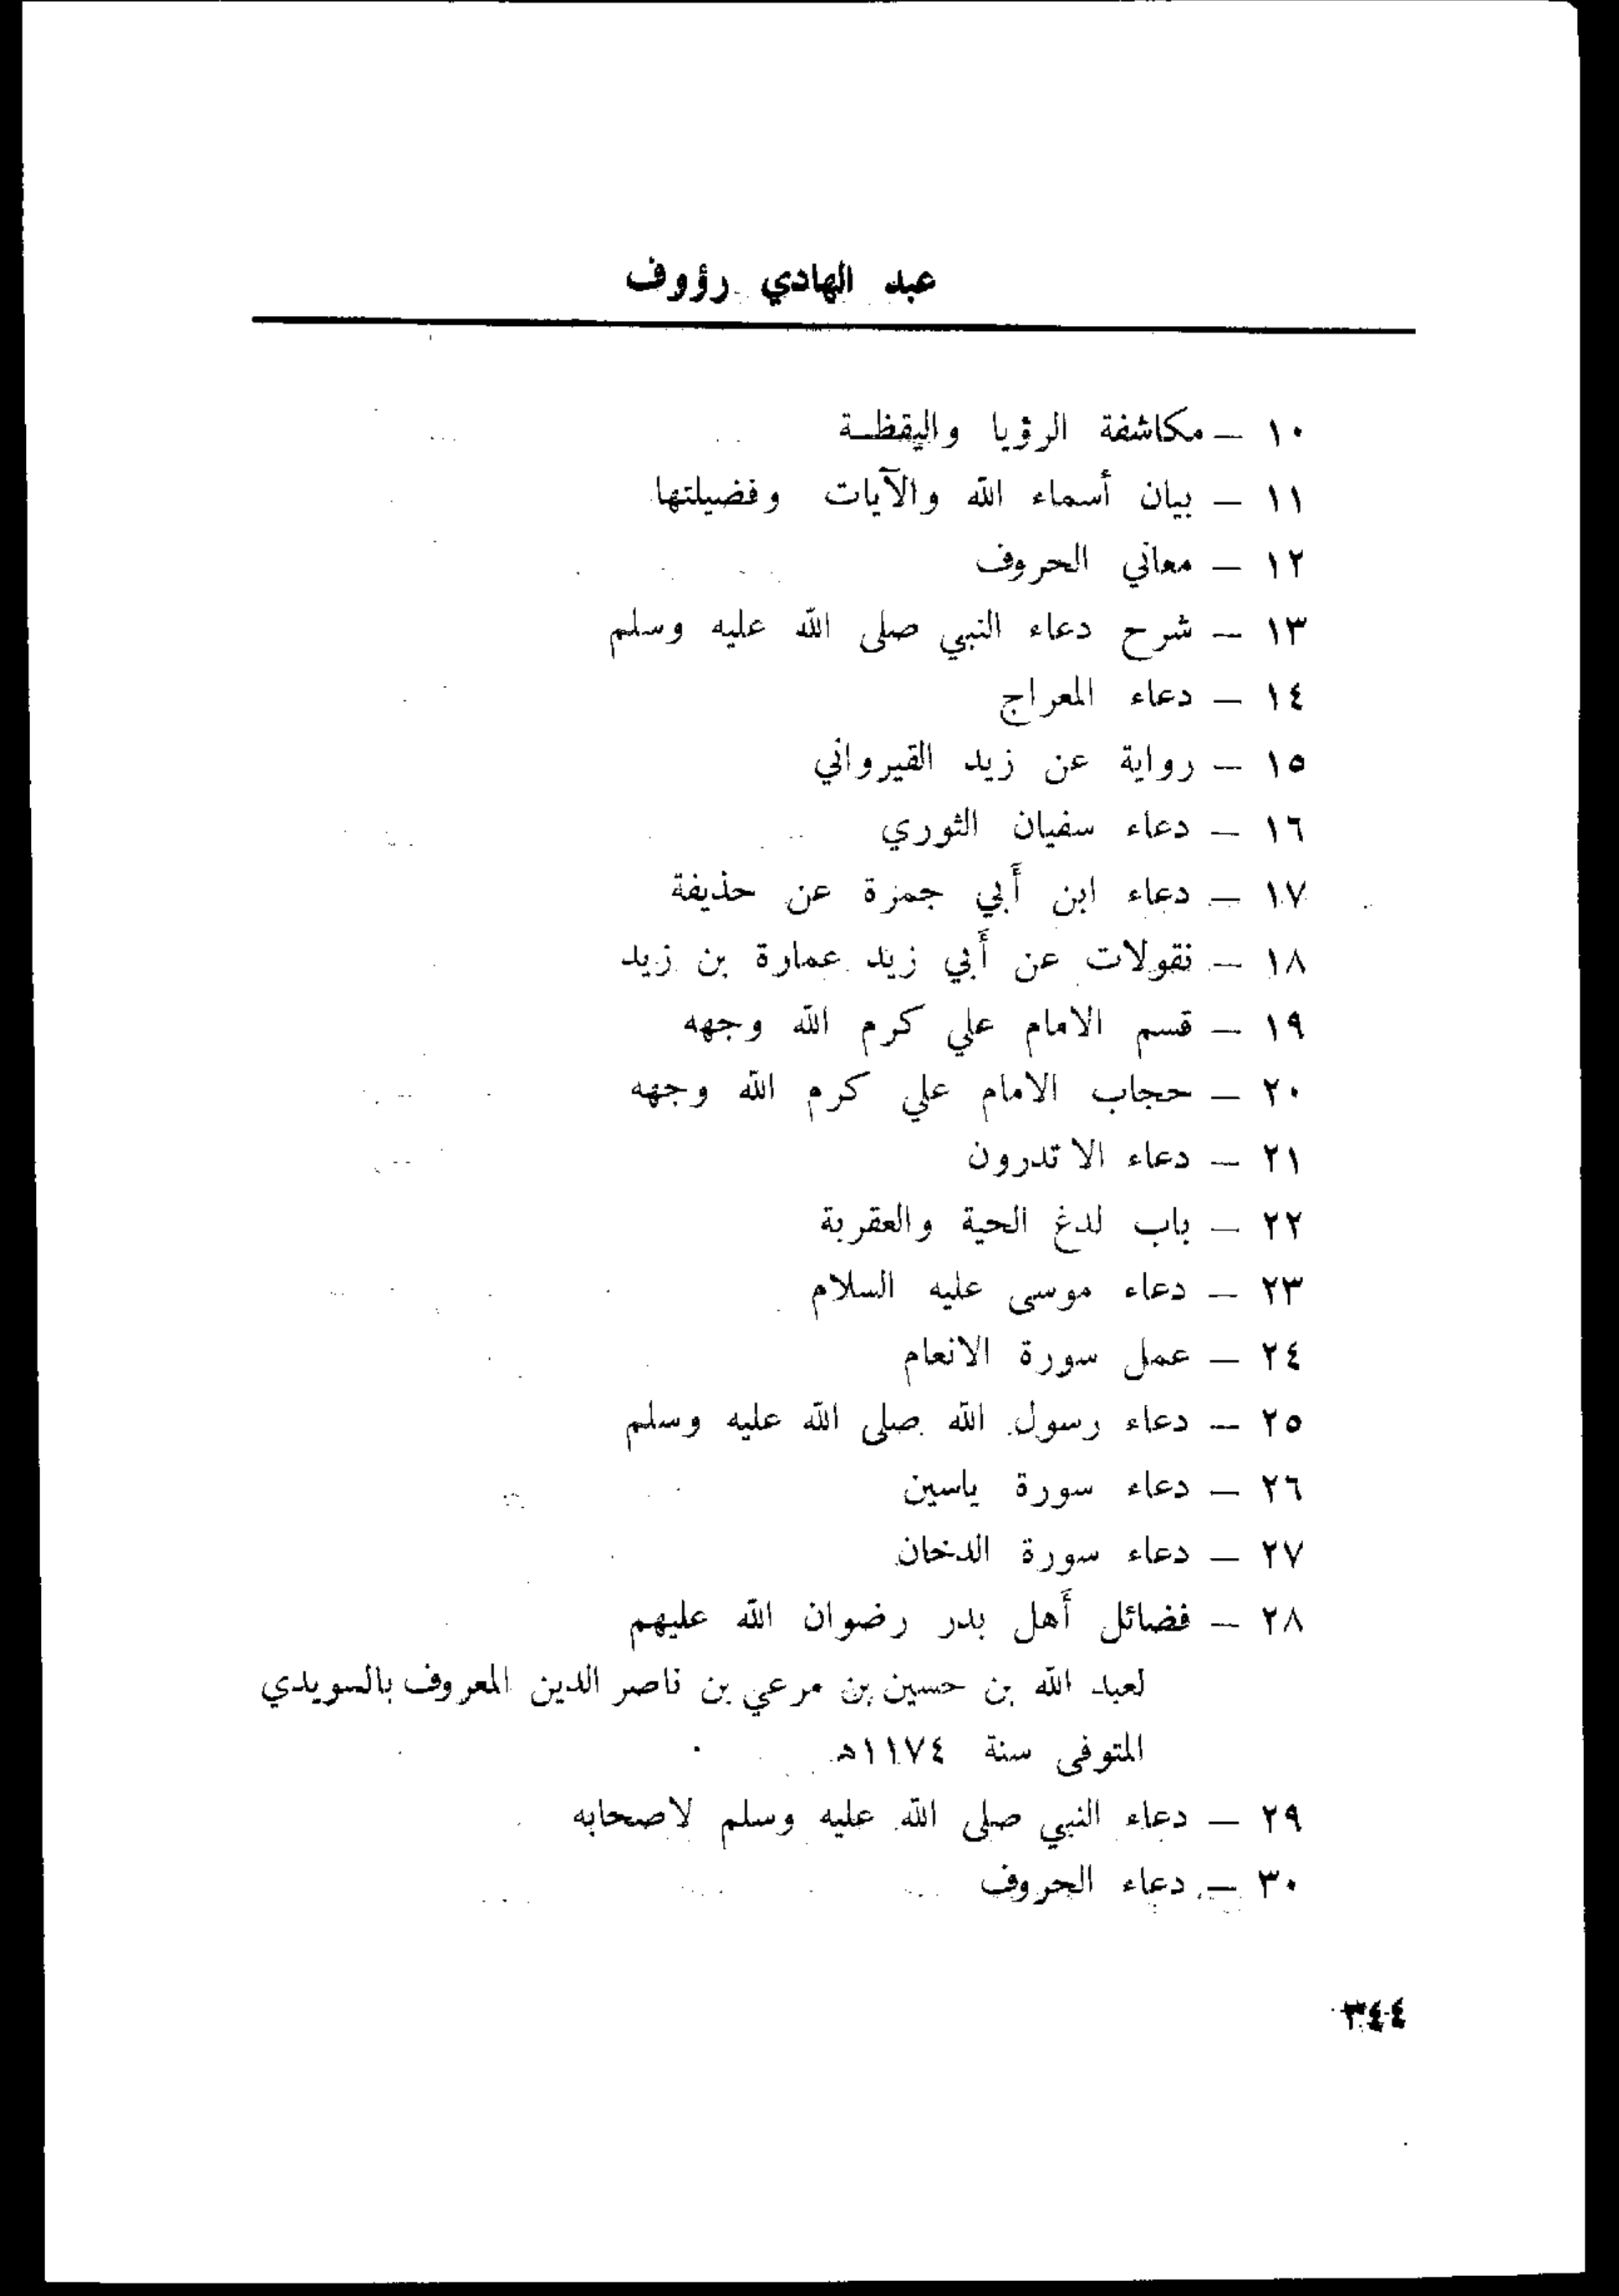 عبد الهادي رؤوف
١٠ — مكاشفة الرؤيا واليقظـة
١١ — بيان أسماء الله والآيات وفضيلتها
١٢ — معاني الحروف
١٣ — شرح دعاء النبي صلى الله عليه وسلم
١٤ — دعاء المعراج
١٥ — رواية عن زيد القيرواني
١٦ — دعاء سفيان الثوري
١٧ — دعاء ابن أَبي جمزة عن حذيفة
١٨ — نقولات عن أَبي زيد عمارة بن زيد
١٩ — قسم الامام علي كرم الله وجهه
٢٠ — حجاب الامام علي كرم الله وجهه
٢١ — دعاء الاتدرون
٢٢ — باب لدغ الحية والعقربة
٢٣ — دعاء موسى عليه السلام
٢٤ — عمل سورة الانعام
٢٥ — دعاء رسول الله صلى الله عليه وسلم
٢٦ — دعاء سورة ياسين
٢٧ — دعاء سورة الدخان
٢٨ — فضائل أَهل بدر رضوان الله عليهم
لعبد الله بن حسين بن مرعي بن ناصر الدين المعروف بالسويدي
المتوفى سنة ١١٧٤هـ
٢٩ — دعاء النبي صلى الله عليه وسلم لاصحابه
٣٠ — دعاء الحروف
٣٤٤